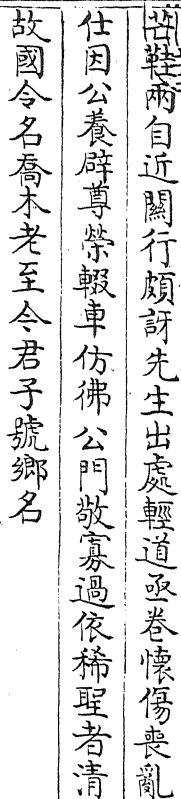 鞋兩自近關行頗訝先生出處輕道亟卷懷傷喪亂
仕因公養辟尊榮輟車仿彿公門敬寡過依稀聖者清
故國令名喬木老至今君子號鄉名